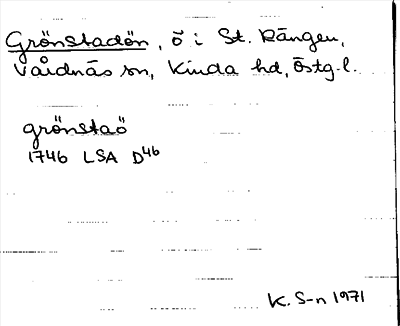 Grönstadön, ö i St. Rängen,
Vårdnäs sn, Kinda hd, Östg. l.
grönstaö
1746 LSA D46
K. S-n 1971